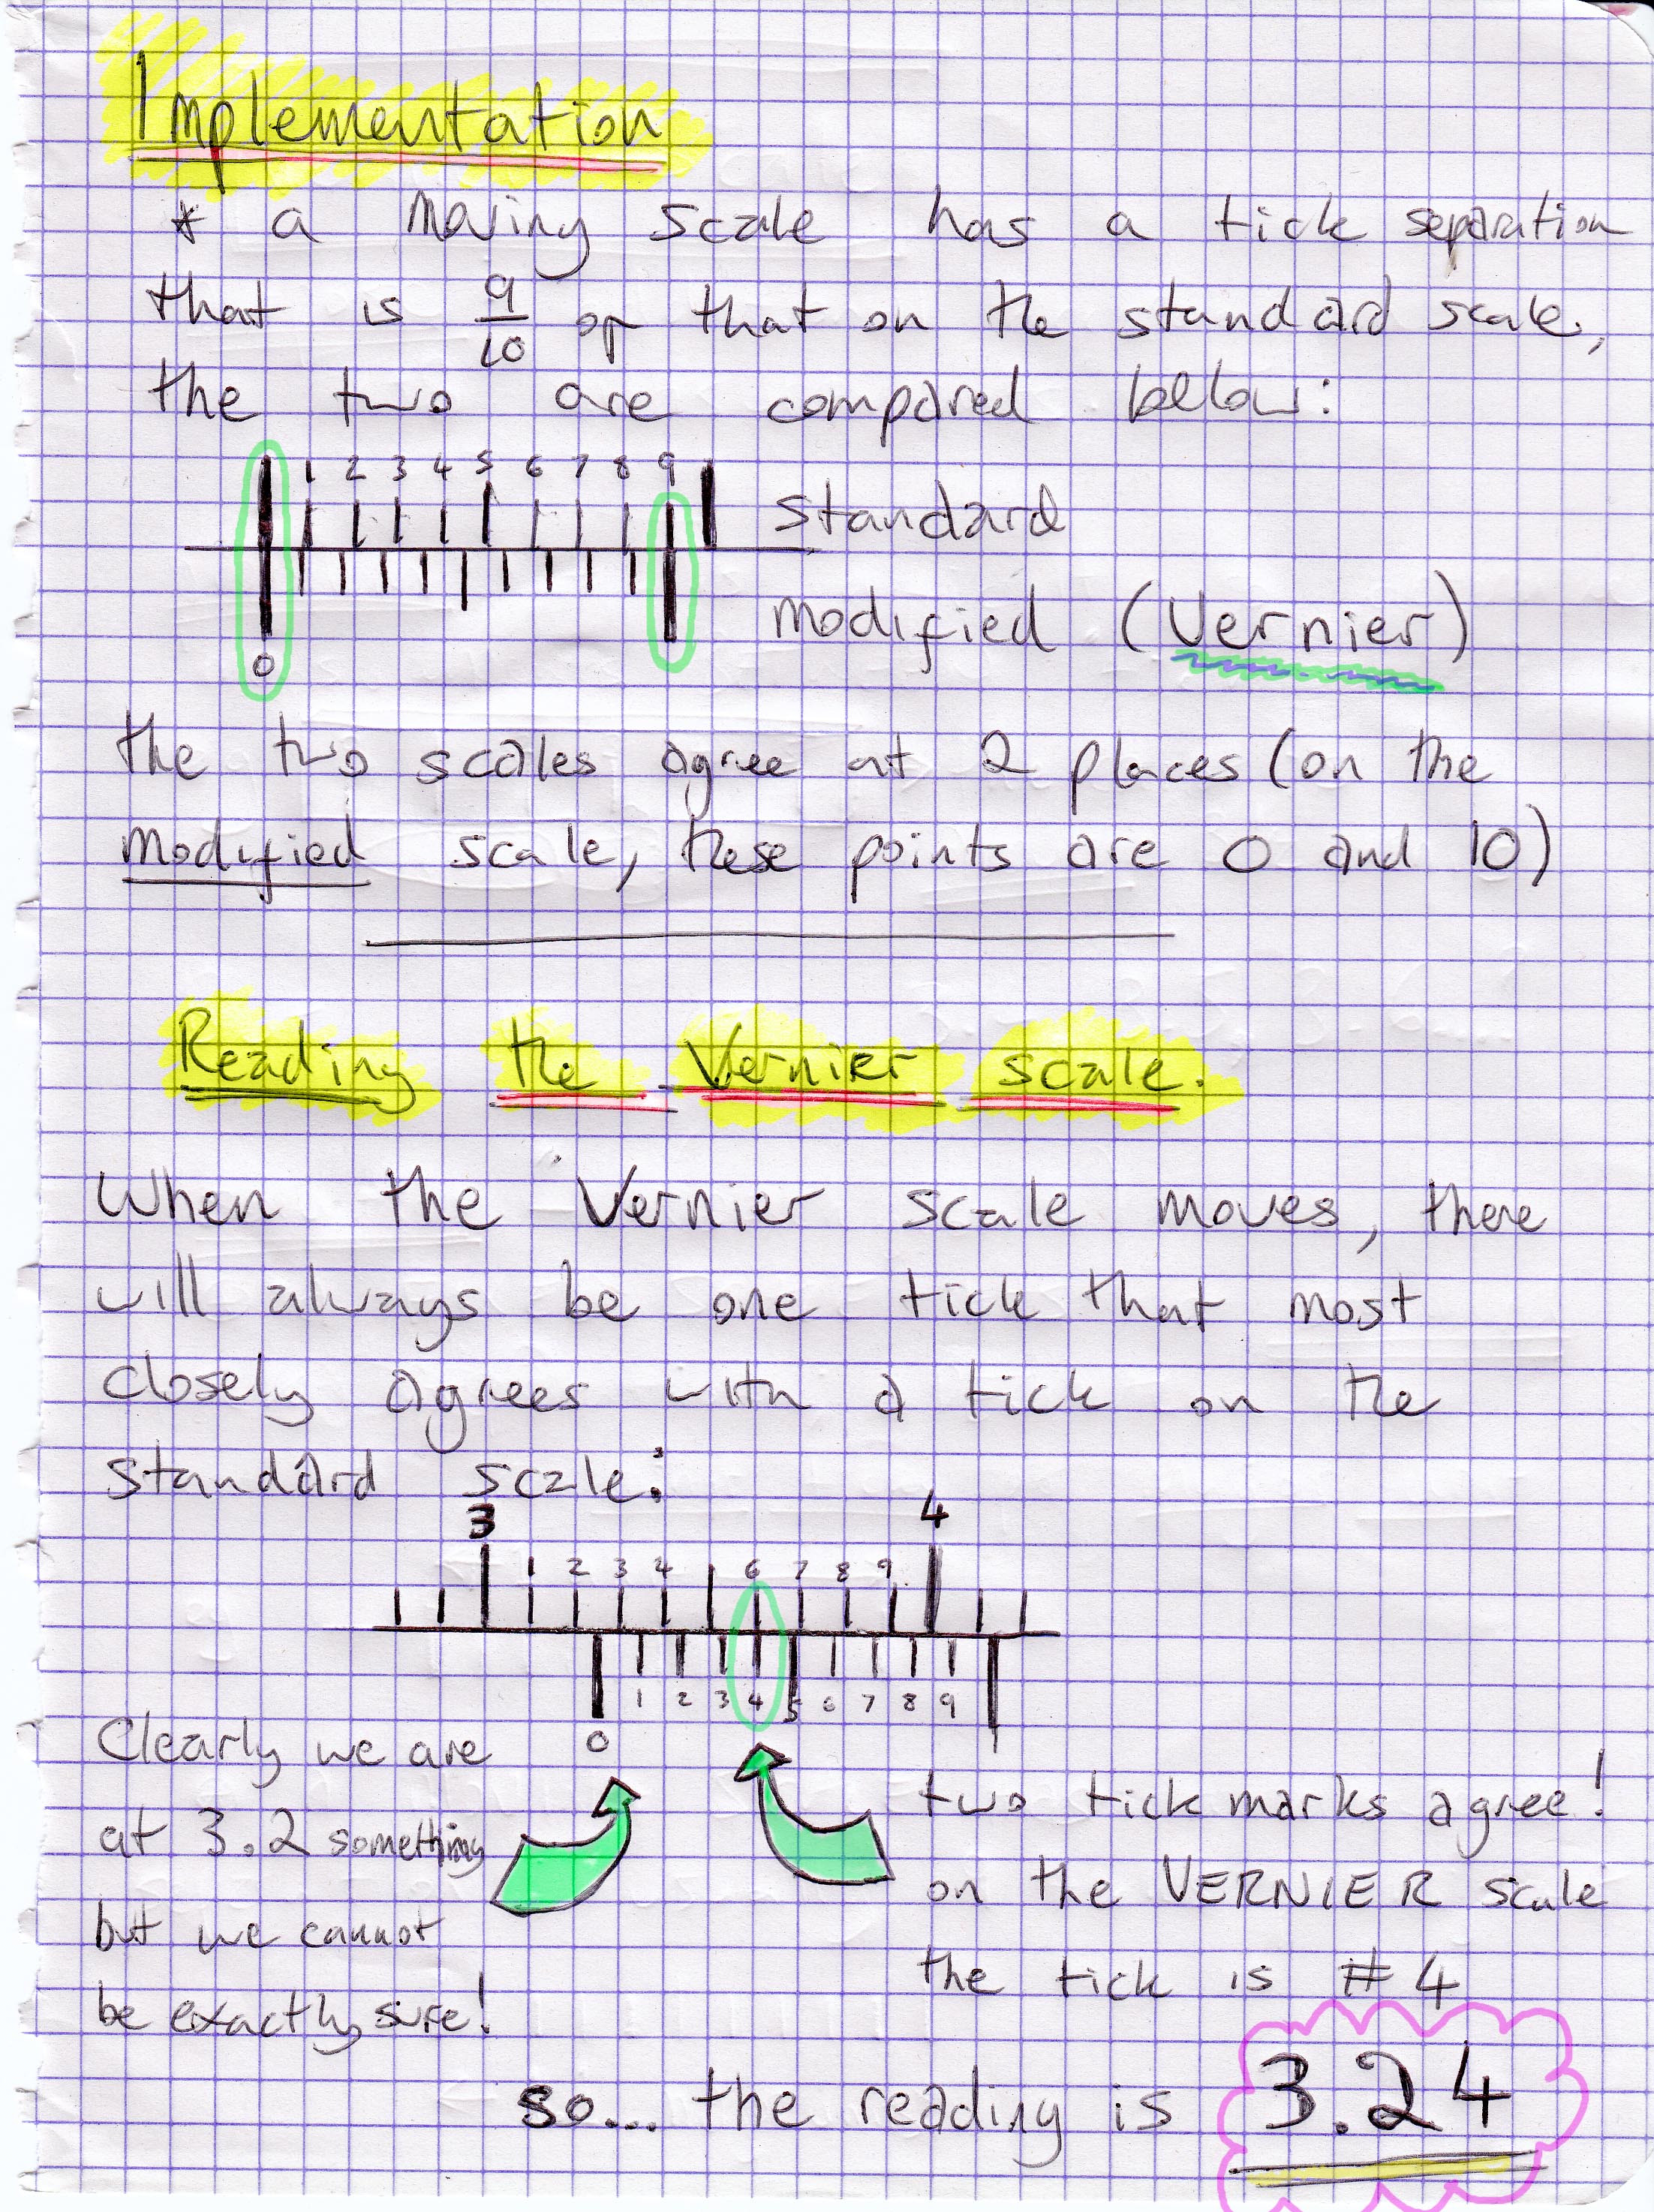 Implementation
* a moving scale has a tick separation
that is 9/10 of that on the standard scale,
the two are compared below:
1 2 3 4 5 6 7 8 9
standard
modified (Vernier)
0
the two scales agree at 2 places (on the
modified scale, these points are 0 and 10)
Reading the Vernier scale.
When the Vernier scale moves, there
will always be one tick that most
closely agrees with a tick on the
standard scale:
3 4
1 2 3 4 6 7 8 9
1 2 3 4 5 6 7 8 9
0
Clearly we are
at 3.2 something
but we cannot
be exactly sure!
two tick marks agree!
on the VERNIER scale
the tick is # 4
so... the reading is 3.24